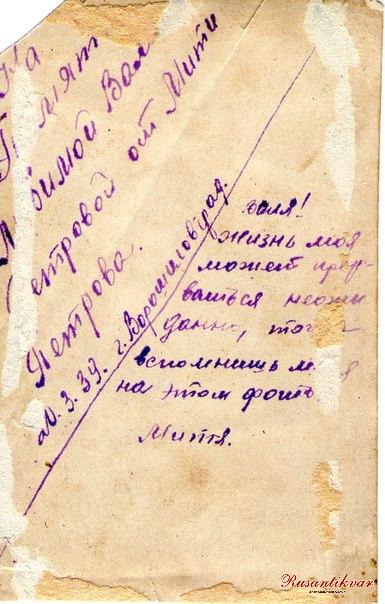 На
Памят
Любимой Вале
Петровой от Мити
Петрова.
20.3.39. г. Ворошиловград.
Валя!
Жизнь моя
может прер-
ваться неожи
данно,
вспомнишь
на этом фото
Митя.
Rusantikvar